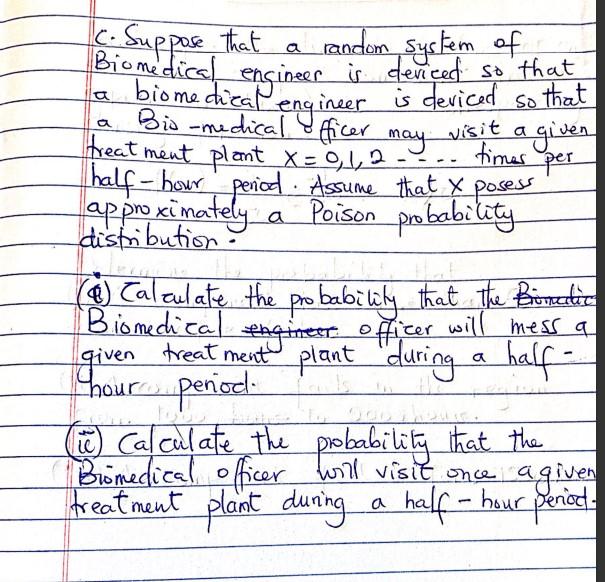 C. Suppose that a random system of
Biomedical engineer is deviced so that
a biomedical engineer is deviced so that
a Bio-medical officer may visit a given
treatment plant X = 0, 1, 2 ---- times per
half-hour period. Assume that X posess
approximately a Poison probability
distribution.
(i) Calculate the probability that the Biomedic
Biomedical engineer officer will mess a
given treatment plant during a half-
hour period.
(ii) Calculate the probability that the
Biomedical officer will visit once a given
treatment plant during a half-hour period.